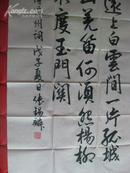 遠上白雲間一片孤城
山羌笛何須怨楊柳
不度玉門關
州詞戊子夏日